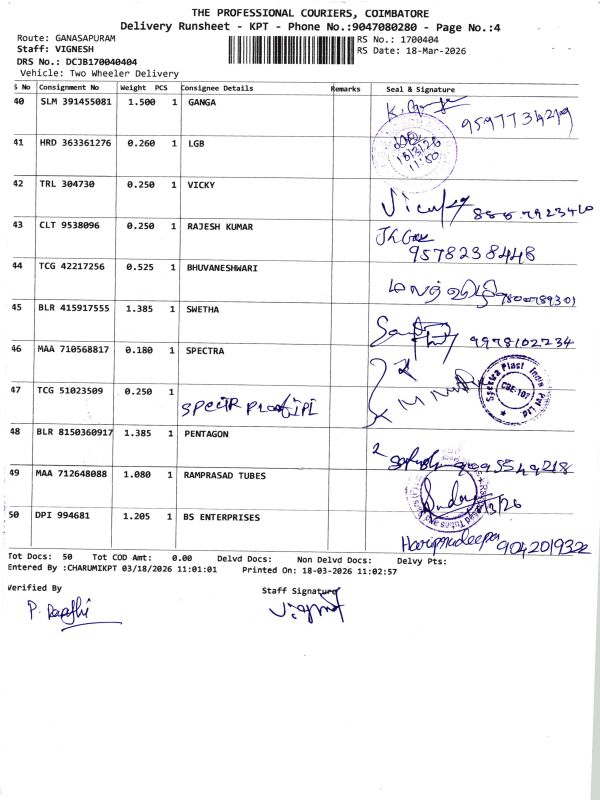 THE PROFESSIONAL COURIERS, COIMBATORE
Delivery Runsheet - KPT - Phone No.:9047080280 - Page No.:4
Route: GANASAPURAM
RS No.: 1700404
Staff: VIGNESH
RS Date: 18-Mar-2026
DRS No.: DCJB170040404
Vehicle: Two Wheeler Delivery
S No Consignment No Weight PCS Consignee Details Remarks Seal & Signature
40 SLM 391455081 1.500 1 GANGA
9597734219
41 HRD 363361276 0.260 1 LGB
18/3/26
11:50
42 TRL 304730 0.250 1 VICKY
43 CLT 9538096 0.250 1 RAJESH KUMAR
9578238448
44 TCG 42217256 0.525 1 BHUVANESHWARI
45 BLR 415917555 1.385 1 SWETHA
9978102234
46 MAA 710568817 0.180 1 SPECTRA
Spectra Plast India Pvt Ltd
CBE-107
47 TCG 51023509 0.250 1
48 BLR 8150360917 1.385 1 PENTAGON
49 MAA 712648088 1.080 1 RAMPRASAD TUBES
50 DPI 994681 1.205 1 BS ENTERPRISES
9042019322
Tot Docs: 50 Tot COD Amt: 0.00 Delvd Docs: Non Delvd Docs: Delvy Pts:
Entered By :CHARUMIKPT 03/18/2026 11:01:01 Printed On: 18-03-2026 11:02:57
Verified By
Staff Signature